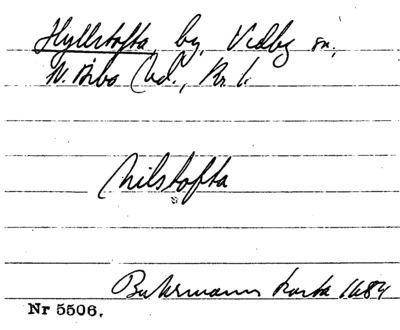 Hyllstofta by, Vedby sn,
N. Åsbo hd., Kr. l.
Nilstofta
Buhrmanns karta 1684
Nr 5506.